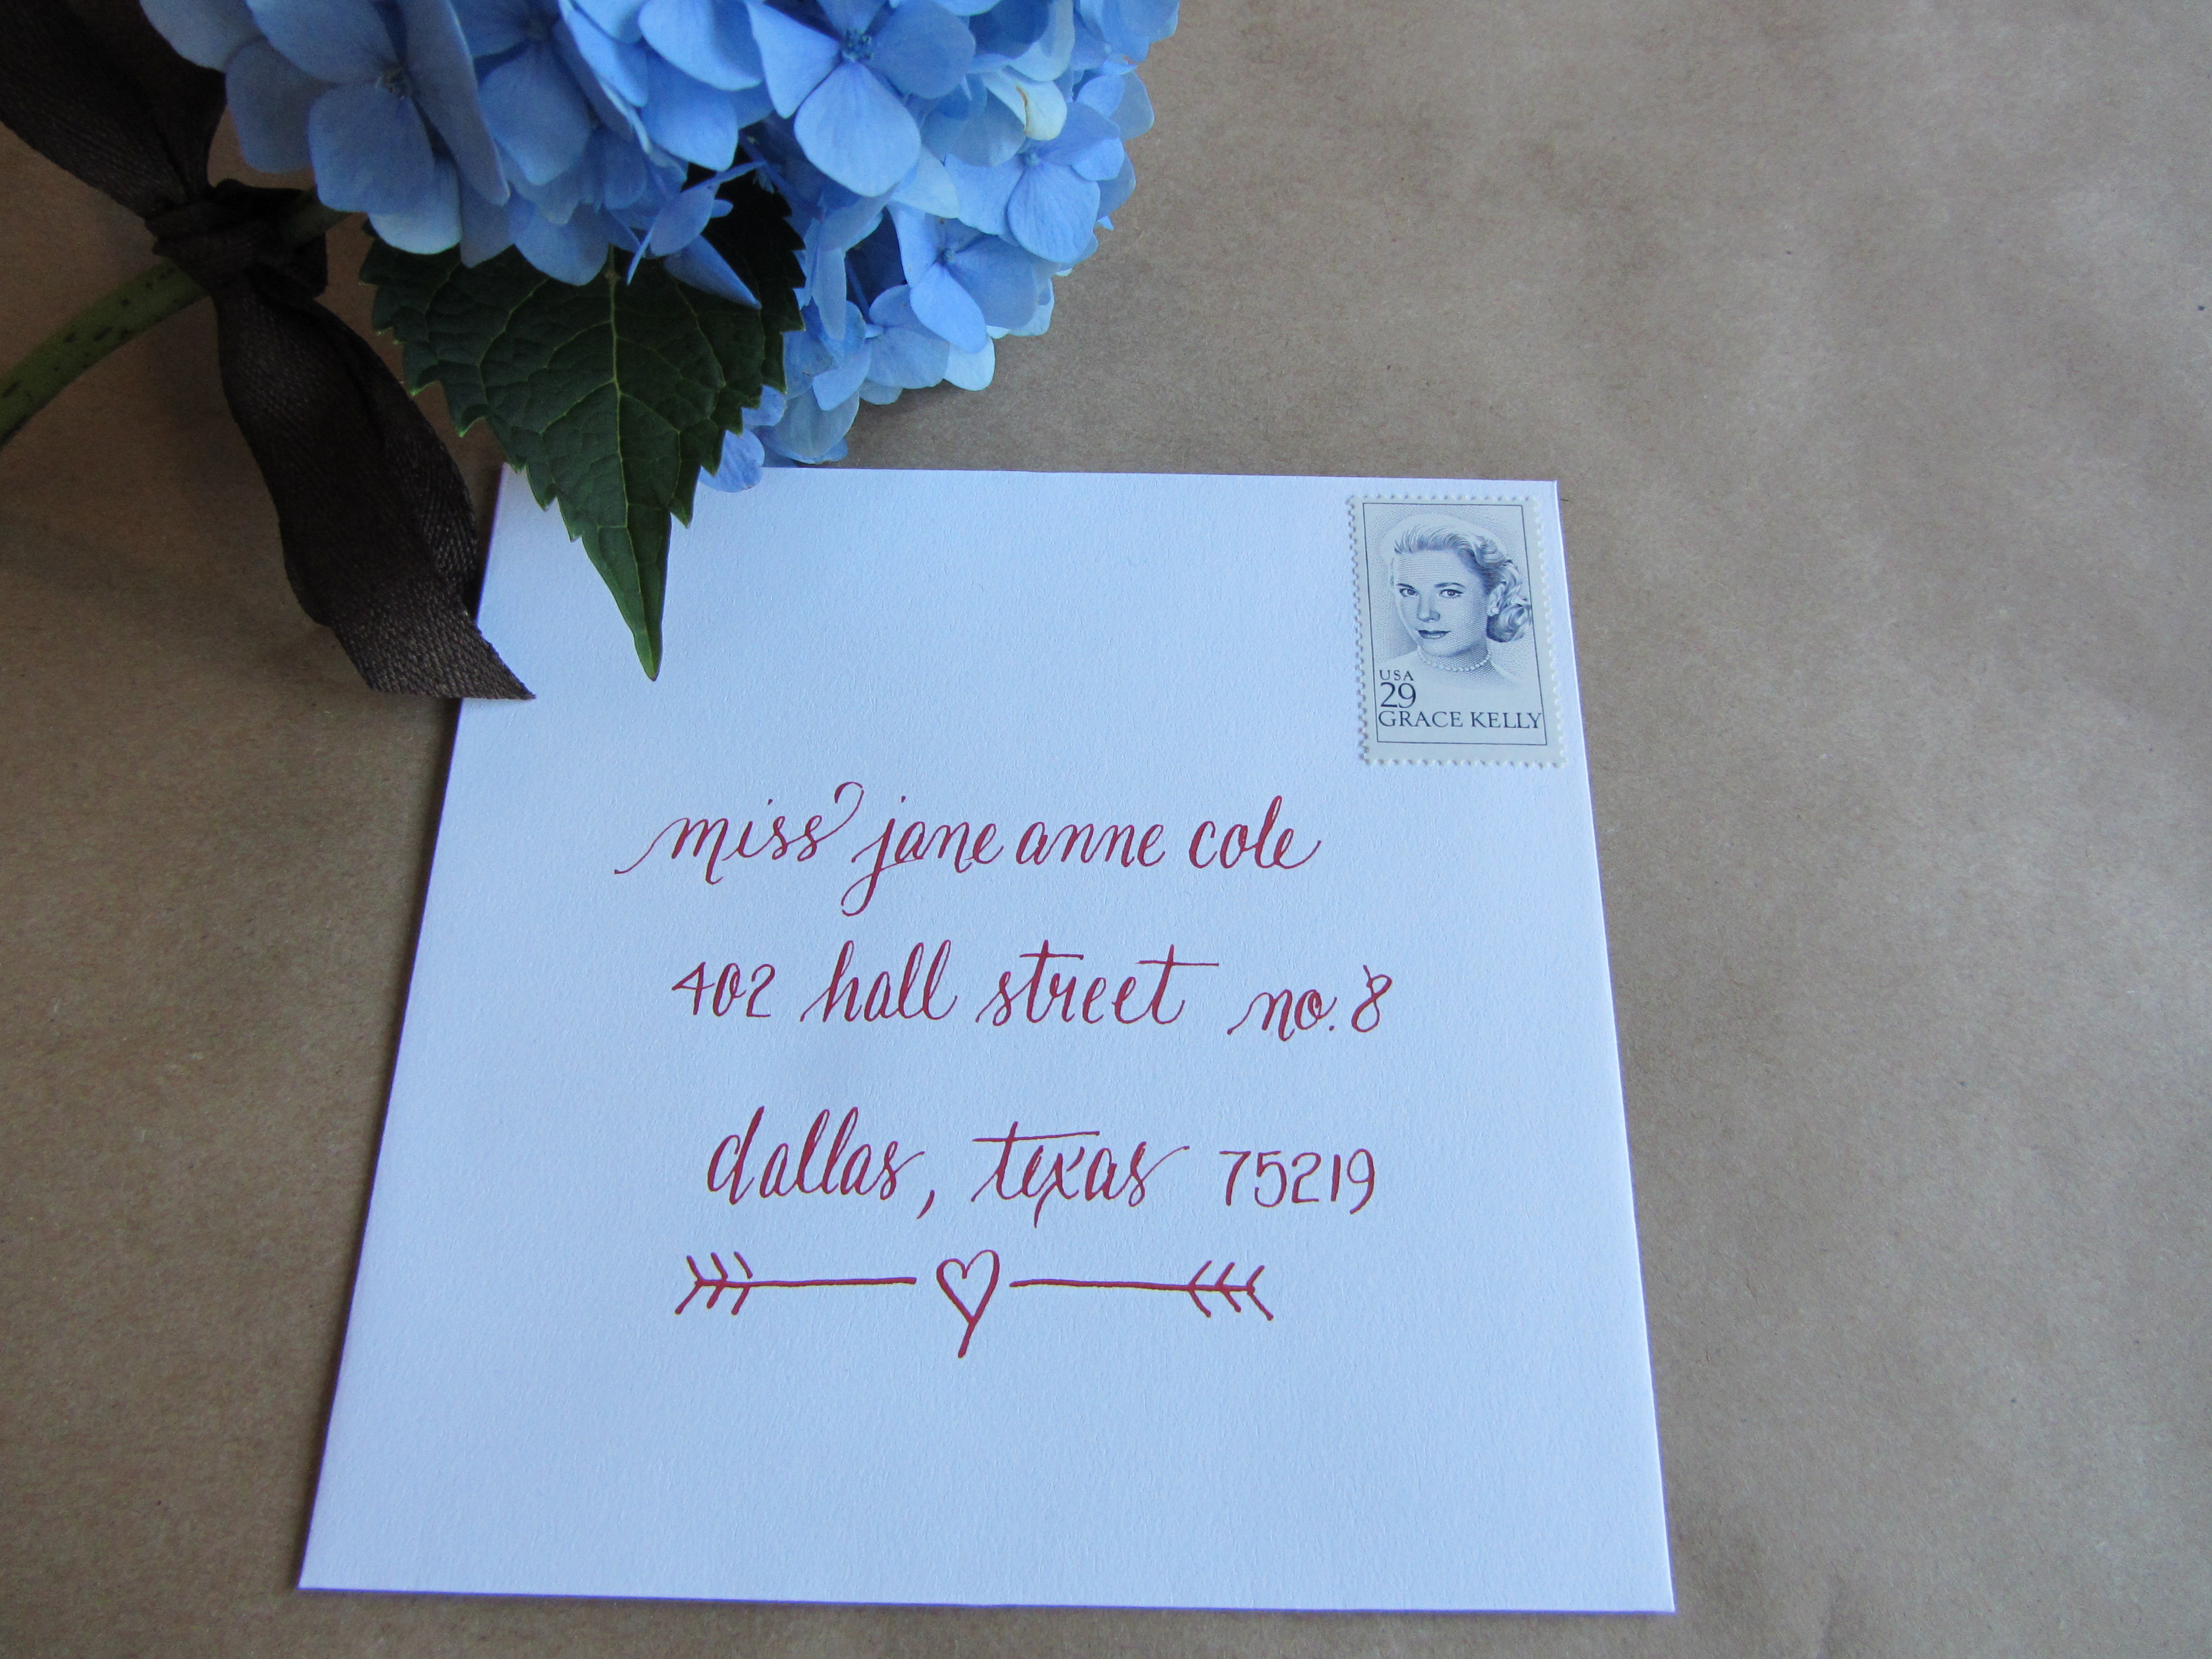 USA
29
GRACE KELLY
miss jane anne cole
402 hall street no. 8
dallas, texas 75219